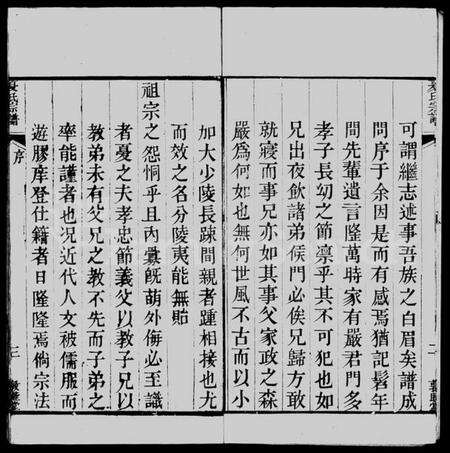 可謂繼志述事吾族之白眉矣譜成
問序于余因是而有感焉猶記髫年
間先輩遺言隆萬時家有嚴君門多
孝子長幼之節凛乎其不可犯也如
兄出夜飲諸弟俟門必俟兄歸方敢
就寢而事兄亦如其事父家政之森
嚴爲何如也無何世風不古而以小
加大少陵長疎間親者踵相接也尤
而效之名分陵夷能無貽
祖宗之怨恫乎且內釁既萌外侮必至識
者憂之夫孝忠節義父以教子兄以
教弟未有父兄之教不先而子弟之
率能謹者也况近代人文被儒服而
遊膠庠登仕籍者日隆隆焉倘宗法
序
三
二